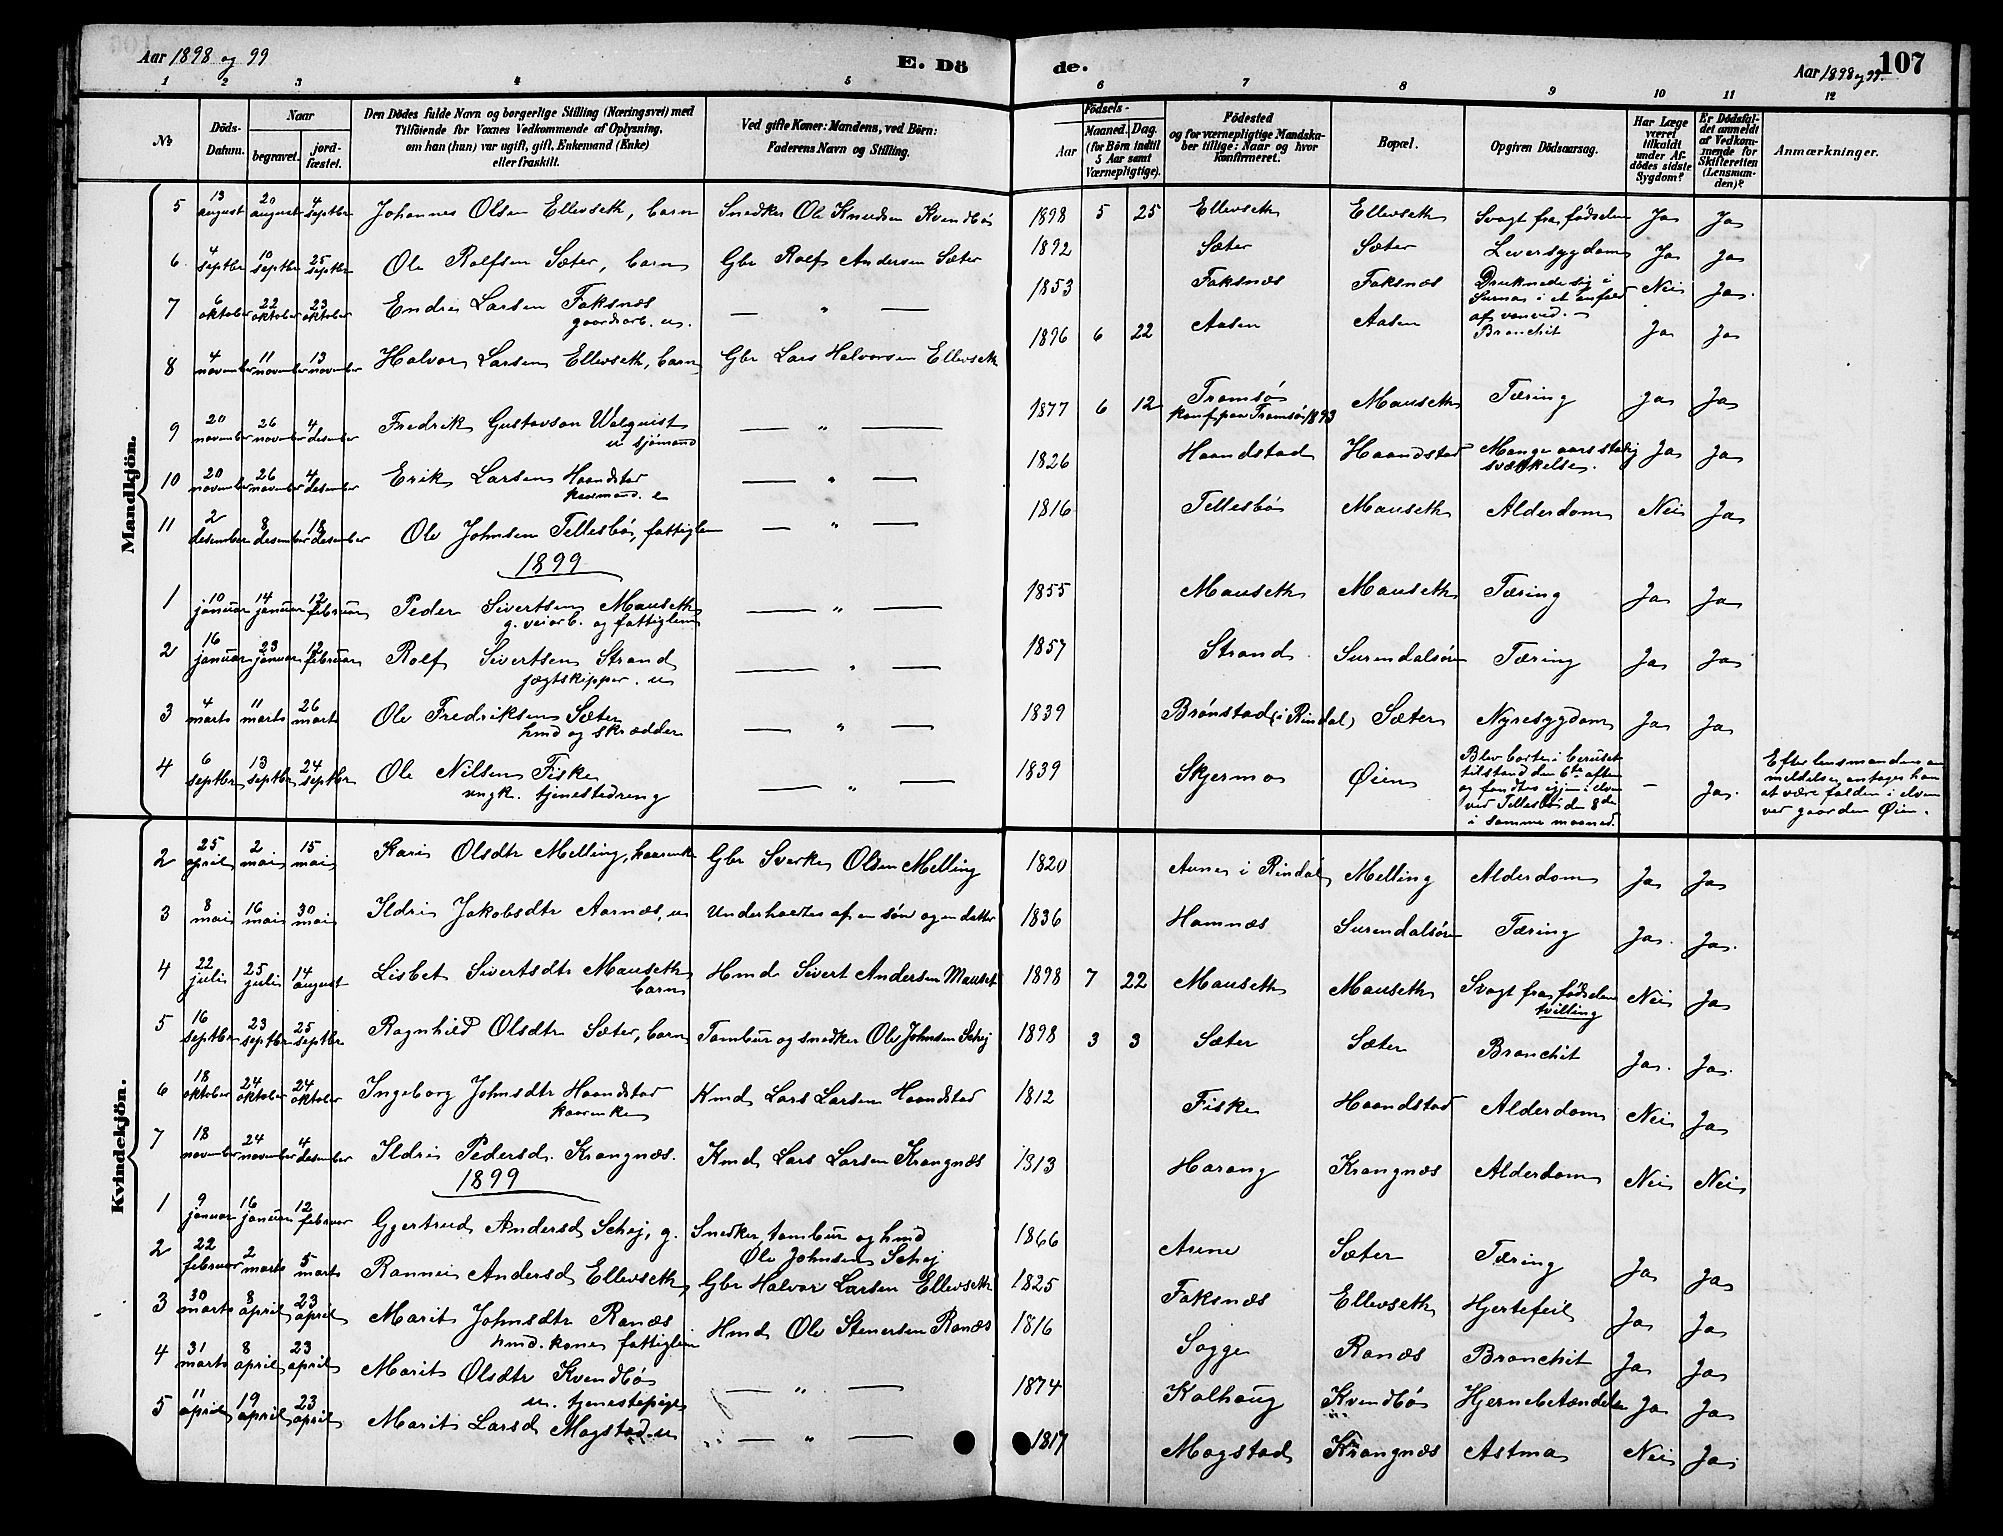 Aar 1898 og 99
E. Dö
de.
Aar 1898 og 99.
107
1 2 3 4 5 6 7 8 9 10 11 12
No
Döds-Datum.
Naar
begravet.
jord-fæstet.
Den Dödes fulde Navn og borgerlige Stilling (Næringsvei) med
Tilföiende for Voxnes Vedkommende af Oplysning,
om han (hun) var ugift, gift, Enkemand (Enke)
eller fraskilt.
Ved gifte Koner: Mandens, ved Börn:
Faderens Navn og Stilling.
Födsels-
Aar
Maaned. Dag.
(for Börn indtil
5 Aar samt
Værnepligtige).
Födested
og for værnepligtige Mandska-
ber tillige: Naar og hvor
konfirmeret.
Bopæl.
Opgiven Dödsaarsag.
Har Læge
været
tilkaldt
under Af-
dödes sidste
Sygdom?
Er Dödsfal-
det anmeldt
af Vedkom-
mende for
Skifteretten
(Lensman-
den)?
Anmærkninger.
Mandkjön.
5 13 august 20 august 4 septbr Johannes Olsen Ellevseth, barn Snedker Ole Knudsen Kvendbø 1898 5 25 Ellevseth Ellevseth Svagt fra fødselen Ja Ja
6 4 septbr 10 septbr 25 septbr Ole Rolfsen Sæter, barn Gbr Rolf Andersen Sæter 1892 Sæter Sæter Leversygdom Ja Ja
7 6 oktober 22 oktober 23 oktober Endre Larsen Foksnæs gaardsarb. u. — " — 1853 Foksnæs Foksnæs Druknede sig i Surna i et anfald af vanvid. Nei Ja.
8 4 november 11 november 13 november Halvor Larsen Ellevseth, barn Gbr Lars Halvorsen Ellevseth 1896 6 22 Aasen Aasen Bronchit Ja Ja
9 20 november 26 november 4 desember Fredrik Gustavson Walquist u sjømand — " — 1877 6 12 Tromsø konf. paa Tromsø 1893 Mauseth Tæring Ja Ja
10 20 november 26 november 4 desember Erik Larsen Haandstad kaarmand. e — " — 1826 Haandstad Haandstad Mange aars stadig svækkelse. Ja Ja
11 2 desember 8 desember 18 desember Ole Johnsen Tellesbø, fattiglem — " — 1816 Tellesbø Mauseth Alderdom Nei Ja
1899
1 10 januar 14 januar 12 februar Peder Sivertsen Mauseth g. veiarb. og fattiglem — " — 1855 Mauseth Mauseth Tæring Ja Ja
2 16 januar 23 januar 12 februar Rolf Sivertsen Strand jægtskipper. u — " — 1857 Strand Surendalsøren Tæring Ja Ja
3 4 marts 11 marts 26 marts Ole Fredriksen Sæter hmd og skrædder — " — 1839 Brønstad (i Rindal) Sæter Nyresygdom Ja Ja
4 6 septbr 13 septbr 24 septbr Ole Nilsen Fiske ungk. tjenestedreng " — 1839 Skjermo Øien Blev borte i beruset tilstand den 6te aften og fandtes igjen i elven ved Tellesbø den 8de i samme maaned. — Ja. Efter lensmandens an meldelse antages han at være falden i elven ved gaarden Øien.
Kvindekjön.
2 25 april 2 mai 15 mai Kari Olsdtr Melling, kaarenke Gbr Sverke Olsen Melling 1820 Aune i Rindal Melling Alderdom Ja Ja
3 8 mai 16 mai 30 mai Ildri Jakobsdtr Aarnæs, u Underholdtes af en søn og en datter 1836 Hamnæs Surendalsøren Tæring Ja. Ja.
4 22 juli 25 juli 14 august Lisbet Sivertsdtr Mauseth barn Hmd Sivert Andersen Mauset 1898 7 22 Mauseth Mauseth Svagt fra fødselen tvilling Nei Ja
5 16 septbr 23 septbr 25 septbr Ragnhild Olsdtr Sæter, barn Tambur og snedker Ole Johnsen Schej 1898 3 3 Sæter Sæter Bronchit Ja. Ja.
6 18 oktober 24 oktober 24 oktober Ingeborg Johnsdtr Haandstad kaarenke Kmd Lars Larsen Haandstad 1812 Fiske Haandstad Alderdom Nei Ja
7 18 november 24 november 4 desember Ildri Pedersd. Krangnæs. Kmd Lars Larsen Krangnæs 1813 Harang Krangnæs Alderdom Nei Nei
1899
1 9 januar 16 januar 12 februar Gjertrud Andersd Schej, g. Snedker, tambur og hmd Ole Johnsen Schej 1866 Aune Sæter Tæring Ja Ja
2 22 februar 2 marts 5 marts Rannei Andersd Ellevseth Gbr Halvor Larsen Ellevseth 1825 Foksnæs Ellevseth Hjertefeil Ja Ja
3 30 marts 8 april 23 april Marit Johnsdtr Ranæs hmd. kone, fattiglem Hmd Ole Stenersen Ranæs 1816 Sogge Ranæs Bronchit Ja Ja
4 31 marts 8 april 23 april Marit Olsdtr Kvendbø u. tjenestepige — " — 1874 Kalhaug Kvendbø Hjernebetændelse Ja Ja
5 11 april 19 april 23 april Marit Larsd Mogstad u — " — 1817 Mogstad Krangnæs Astma Nei Ja